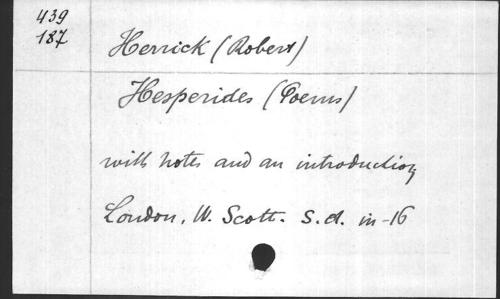 439
187
Herrick (Robert)
Hesperides (Poems)
with notes and an introduction
London, W. Scott. s.d. in-16